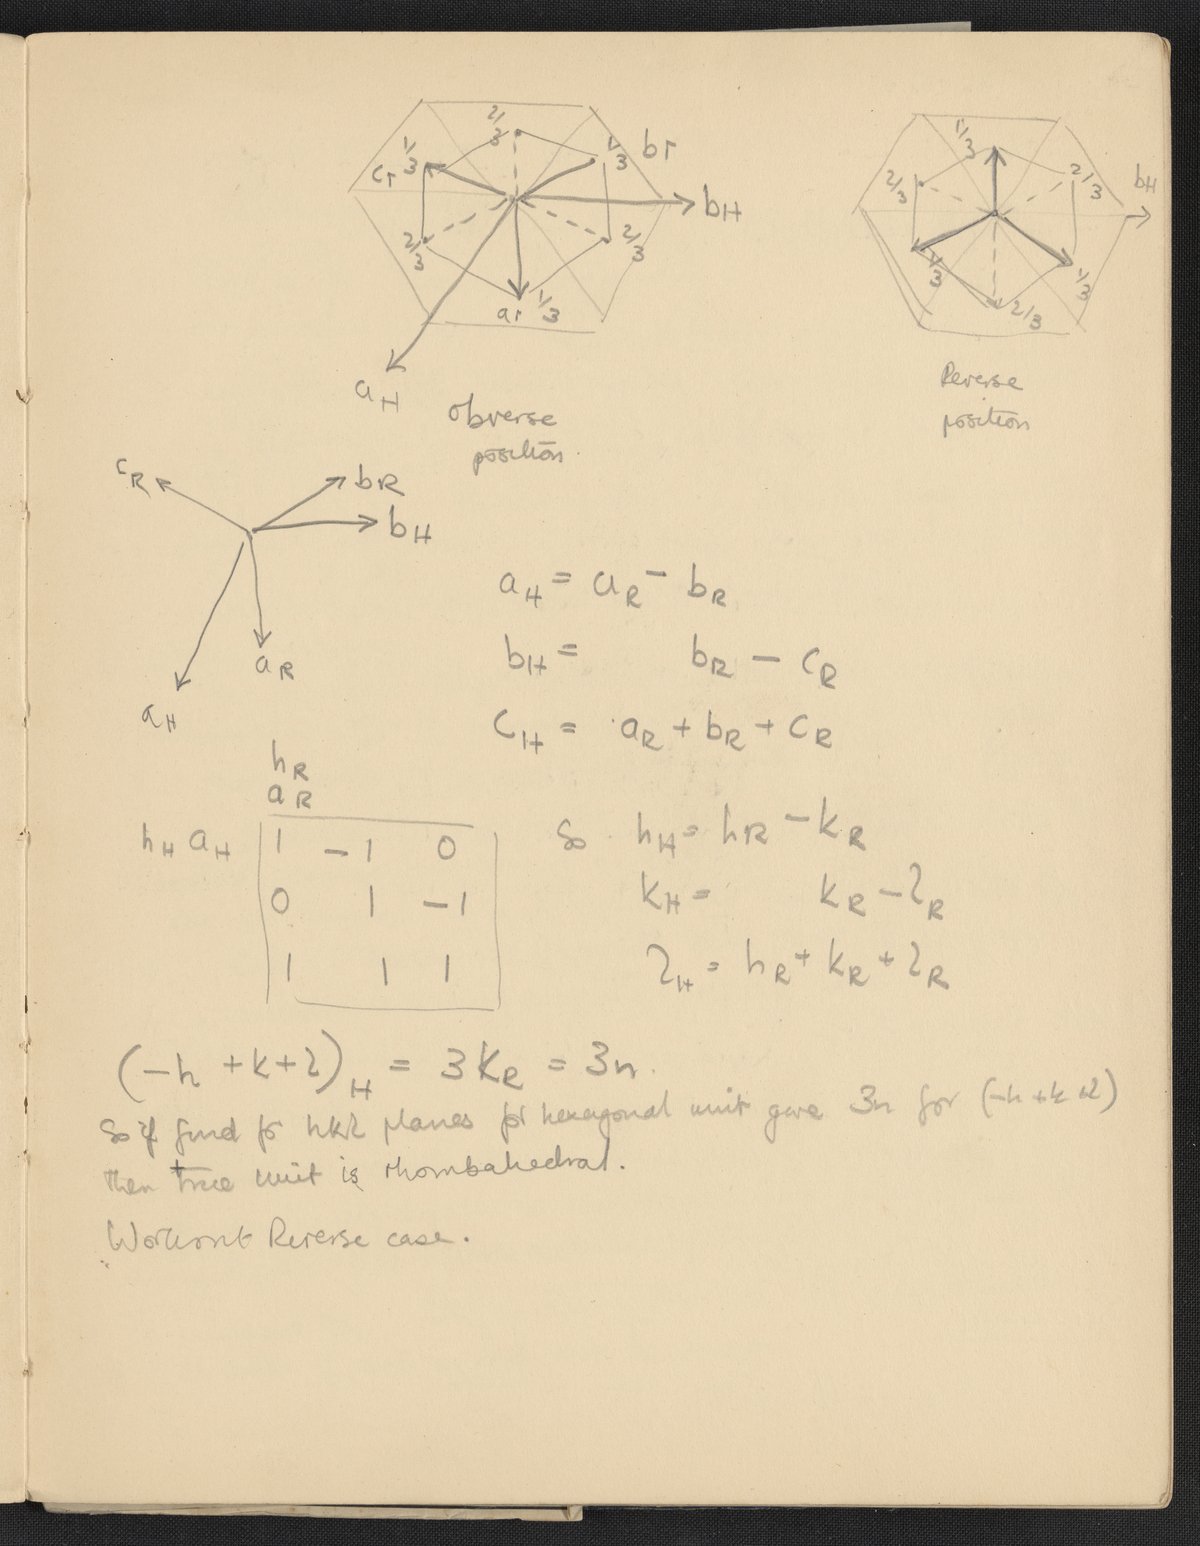 2/3
1/3
cr
1/3
br
bH
2/3
2/3
ar 1/3
aH
obverse
position.
1/3
2/3
2/3
bH
1/3
1/3
2/3
Reverse
position
cR
bR
bH
aR
aH
aH = aR - bR
bH = bR - cR
cH = aR + bR + cR
hR
aR
hH aH 1 -1 0
0 1 -1
1 1 1
So hH = hR - kR
kH = kR - lR
lH = hR + kR + lR
(-h + k + l)H = 3kR = 3n.
So if find for hkl planes for hexagonal unit give 3n for (-h + k + l)
then true unit is rhombahedral.
Workout Reverse case.